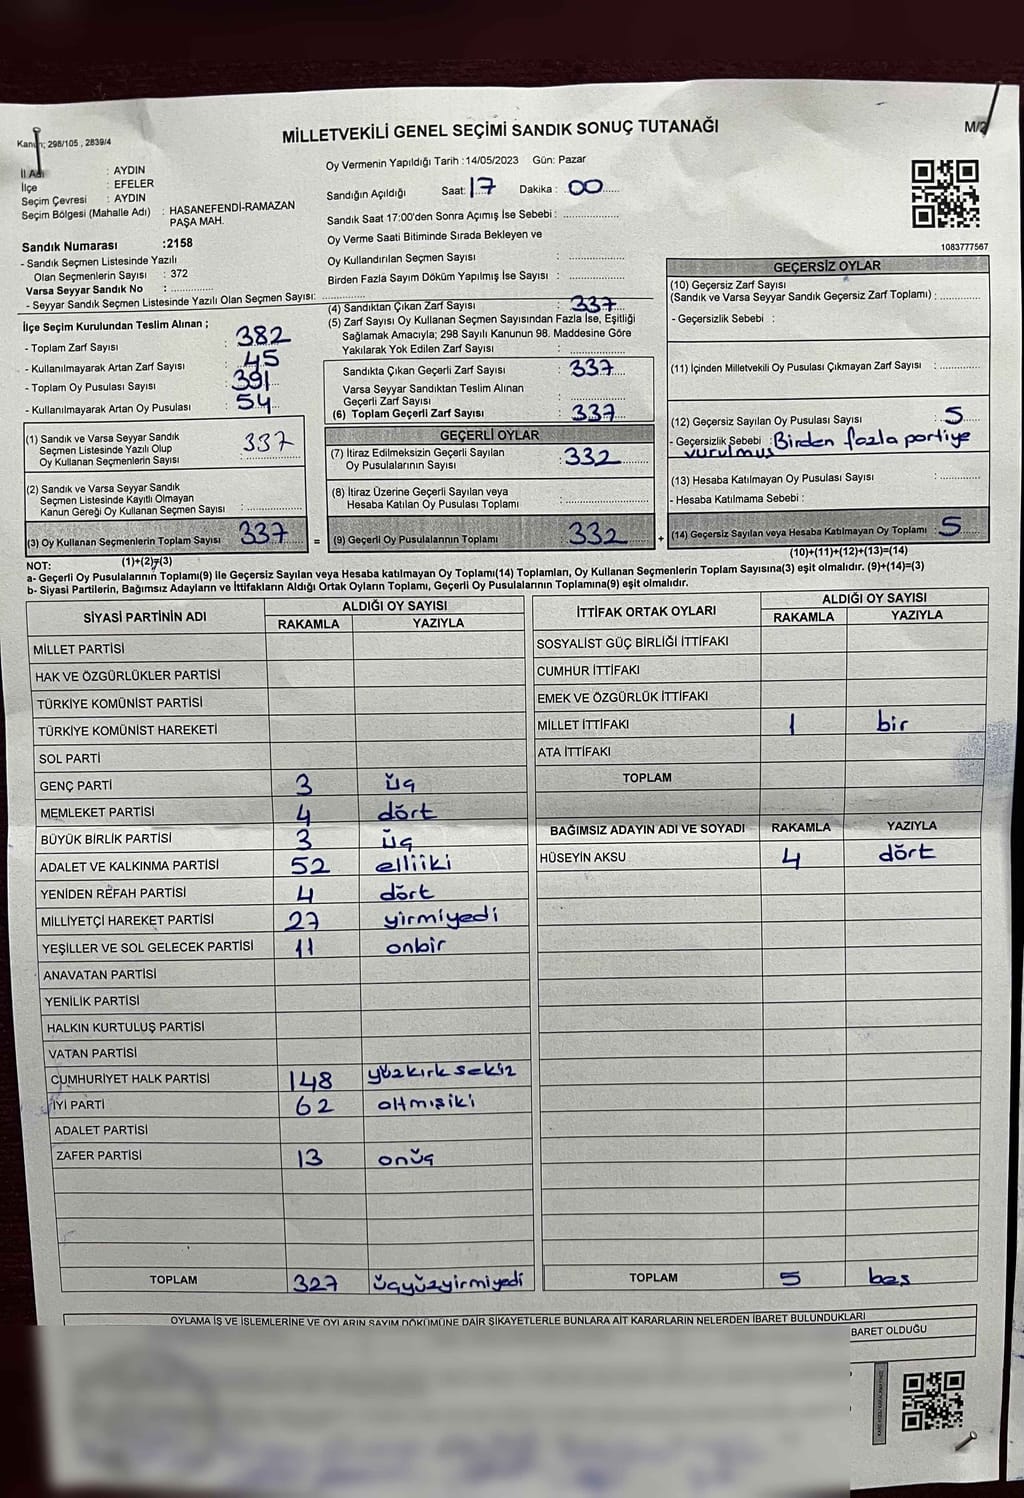 Kanun; 298/105 , 2839/4
MİLLETVEKİLİ GENEL SEÇİMİ SANDIK SONUÇ TUTANAĞI
M/2
İl Adı : AYDIN
İlçe : EFELER
Seçim Çevresi : AYDIN
Seçim Bölgesi (Mahalle Adı) : HASANEFENDİ-RAMAZAN
PAŞA MAH.
Sandık Numarası :2158
- Sandık Seçmen Listesinde Yazılı
Olan Seçmenlerin Sayısı : 372
Varsa Seyyar Sandık No : ............
- Seyyar Sandık Seçmen Listesinde Yazılı Olan Seçmen Sayısı: ............
İlçe Seçim Kurulundan Teslim Alınan ;
- Toplam Zarf Sayısı : 382
- Kullanılmayarak Artan Zarf Sayısı : 45
- Toplam Oy Pusulası Sayısı : 391
- Kullanılmayarak Artan Oy Pusulası : 54
(1) Sandık ve Varsa Seyyar Sandık
Seçmen Listesinde Yazılı Olup
Oy Kullanan Seçmenlerin Sayısı : 337
(2) Sandık ve Varsa Seyyar Sandık
Seçmen Listesinde Kayıtlı Olmayan
Kanun Gereği Oy Kullanan Seçmen Sayısı : ............
(3) Oy Kullanan Seçmenlerin Toplam Sayısı : 337
(1)+(2)=(3)
Oy Vermenin Yapıldığı Tarih :14/05/2023 Gün: Pazar
Sandığın Açıldığı Saat: 17 Dakika : 00
Sandık Saat 17:00'den Sonra Açımış İse Sebebi : ............
Oy Verme Saati Bitiminde Sırada Bekleyen ve
Oy Kullandırılan Seçmen Sayısı : ............
Birden Fazla Sayım Döküm Yapılmış İse Sayısı : ............
(4) Sandıktan Çıkan Zarf Sayısı : 337
(5) Zarf Sayısı Oy Kullanan Seçmen Sayısından Fazla İse, Eşitliği
Sağlamak Amacıyla; 298 Sayılı Kanunun 98. Maddesine Göre
Yakılarak Yok Edilen Zarf Sayısı : ............
Sandıkta Çıkan Geçerli Zarf Sayısı : 337
Varsa Seyyar Sandıktan Teslim Alınan
Geçerli Zarf Sayısı : ............
(6) Toplam Geçerli Zarf Sayısı : 337
GEÇERLİ OYLAR
(7) İtiraz Edilmeksizin Geçerli Sayılan
Oy Pusulalarının Sayısı : 332
(8) İtiraz Üzerine Geçerli Sayılan veya
Hesaba Katılan Oy Pusulası Toplamı : ............
= (9) Geçerli Oy Pusulalarının Toplamı : 332 +
1083777567
GEÇERSİZ OYLAR
(10) Geçersiz Zarf Sayısı
(Sandık ve Varsa Seyyar Sandık Geçersiz Zarf Toplamı) : ............
- Geçersizlik Sebebi :
(11) İçinden Milletvekili Oy Pusulası Çıkmayan Zarf Sayısı : ............
(12) Geçersiz Sayılan Oy Pusulası Sayısı : 5
- Geçersizlik Sebebi : Birden fazla partiye
vurulmuş
(13) Hesaba Katılmayan Oy Pusulası Sayısı : ............
- Hesaba Katılmama Sebebi :
(14) Geçersiz Sayılan veya Hesaba Katılmayan Oy Toplamı : 5
(10)+(11)+(12)+(13)=(14)
NOT:
a- Geçerli Oy Pusulalarının Toplamı(9) ile Geçersiz Sayılan veya Hesaba katılmayan Oy Toplamı(14) Toplamları, Oy Kullanan Seçmenlerin Toplam Sayısına(3) eşit olmalıdır. (9)+(14)=(3)
b- Siyasi Partilerin, Bağımsız Adayların ve İttifakların Aldığı Ortak Oyların Toplamı, Geçerli Oy Pusulalarının Toplamına(9) eşit olmalıdır.
SİYASİ PARTİNİN ADI ALDIĞI OY SAYISI
RAKAMLA YAZIYLA
MİLLET PARTİSİ
HAK VE ÖZGÜRLÜKLER PARTİSİ
TÜRKİYE KOMÜNİST PARTİSİ
TÜRKİYE KOMÜNİST HAREKETİ
SOL PARTİ
GENÇ PARTİ 3 üç
MEMLEKET PARTİSİ 4 dört
BÜYÜK BİRLİK PARTİSİ 3 üç
ADALET VE KALKINMA PARTİSİ 52 elliiki
YENİDEN REFAH PARTİSİ 4 dört
MİLLİYETÇİ HAREKET PARTİSİ 27 yirmiyedi
YEŞİLLER VE SOL GELECEK PARTİSİ 11 onbir
ANAVATAN PARTİSİ
YENİLİK PARTİSİ
HALKIN KURTULUŞ PARTİSİ
VATAN PARTİSİ
CUMHURİYET HALK PARTİSİ 148 yüzkırksekiz
İYİ PARTİ 62 altmışiki
ADALET PARTİSİ
ZAFER PARTİSİ 13 onüç
TOPLAM 327 üçyüzyirmiyedi
İTTİFAK ORTAK OYLARI ALDIĞI OY SAYISI
RAKAMLA YAZIYLA
SOSYALİST GÜÇ BİRLİĞİ İTTİFAKI
CUMHUR İTTİFAKI
EMEK VE ÖZGÜRLÜK İTTİFAKI
MİLLET İTTİFAKI 1 bir
ATA İTTİFAKI
TOPLAM
BAĞIMSIZ ADAYIN ADI VE SOYADI RAKAMLA YAZIYLA
HÜSEYİN AKSU 4 dört
TOPLAM 5 beş
OYLAMA İŞ VE İŞLEMLERİNE VE OYLARIN SAYIM DÖKÜMÜNE DAİR ŞİKAYETLERLE BUNLARA AİT KARARLARIN NELERDEN İBARET BULUNDUKLARI
BARET OLDUĞU